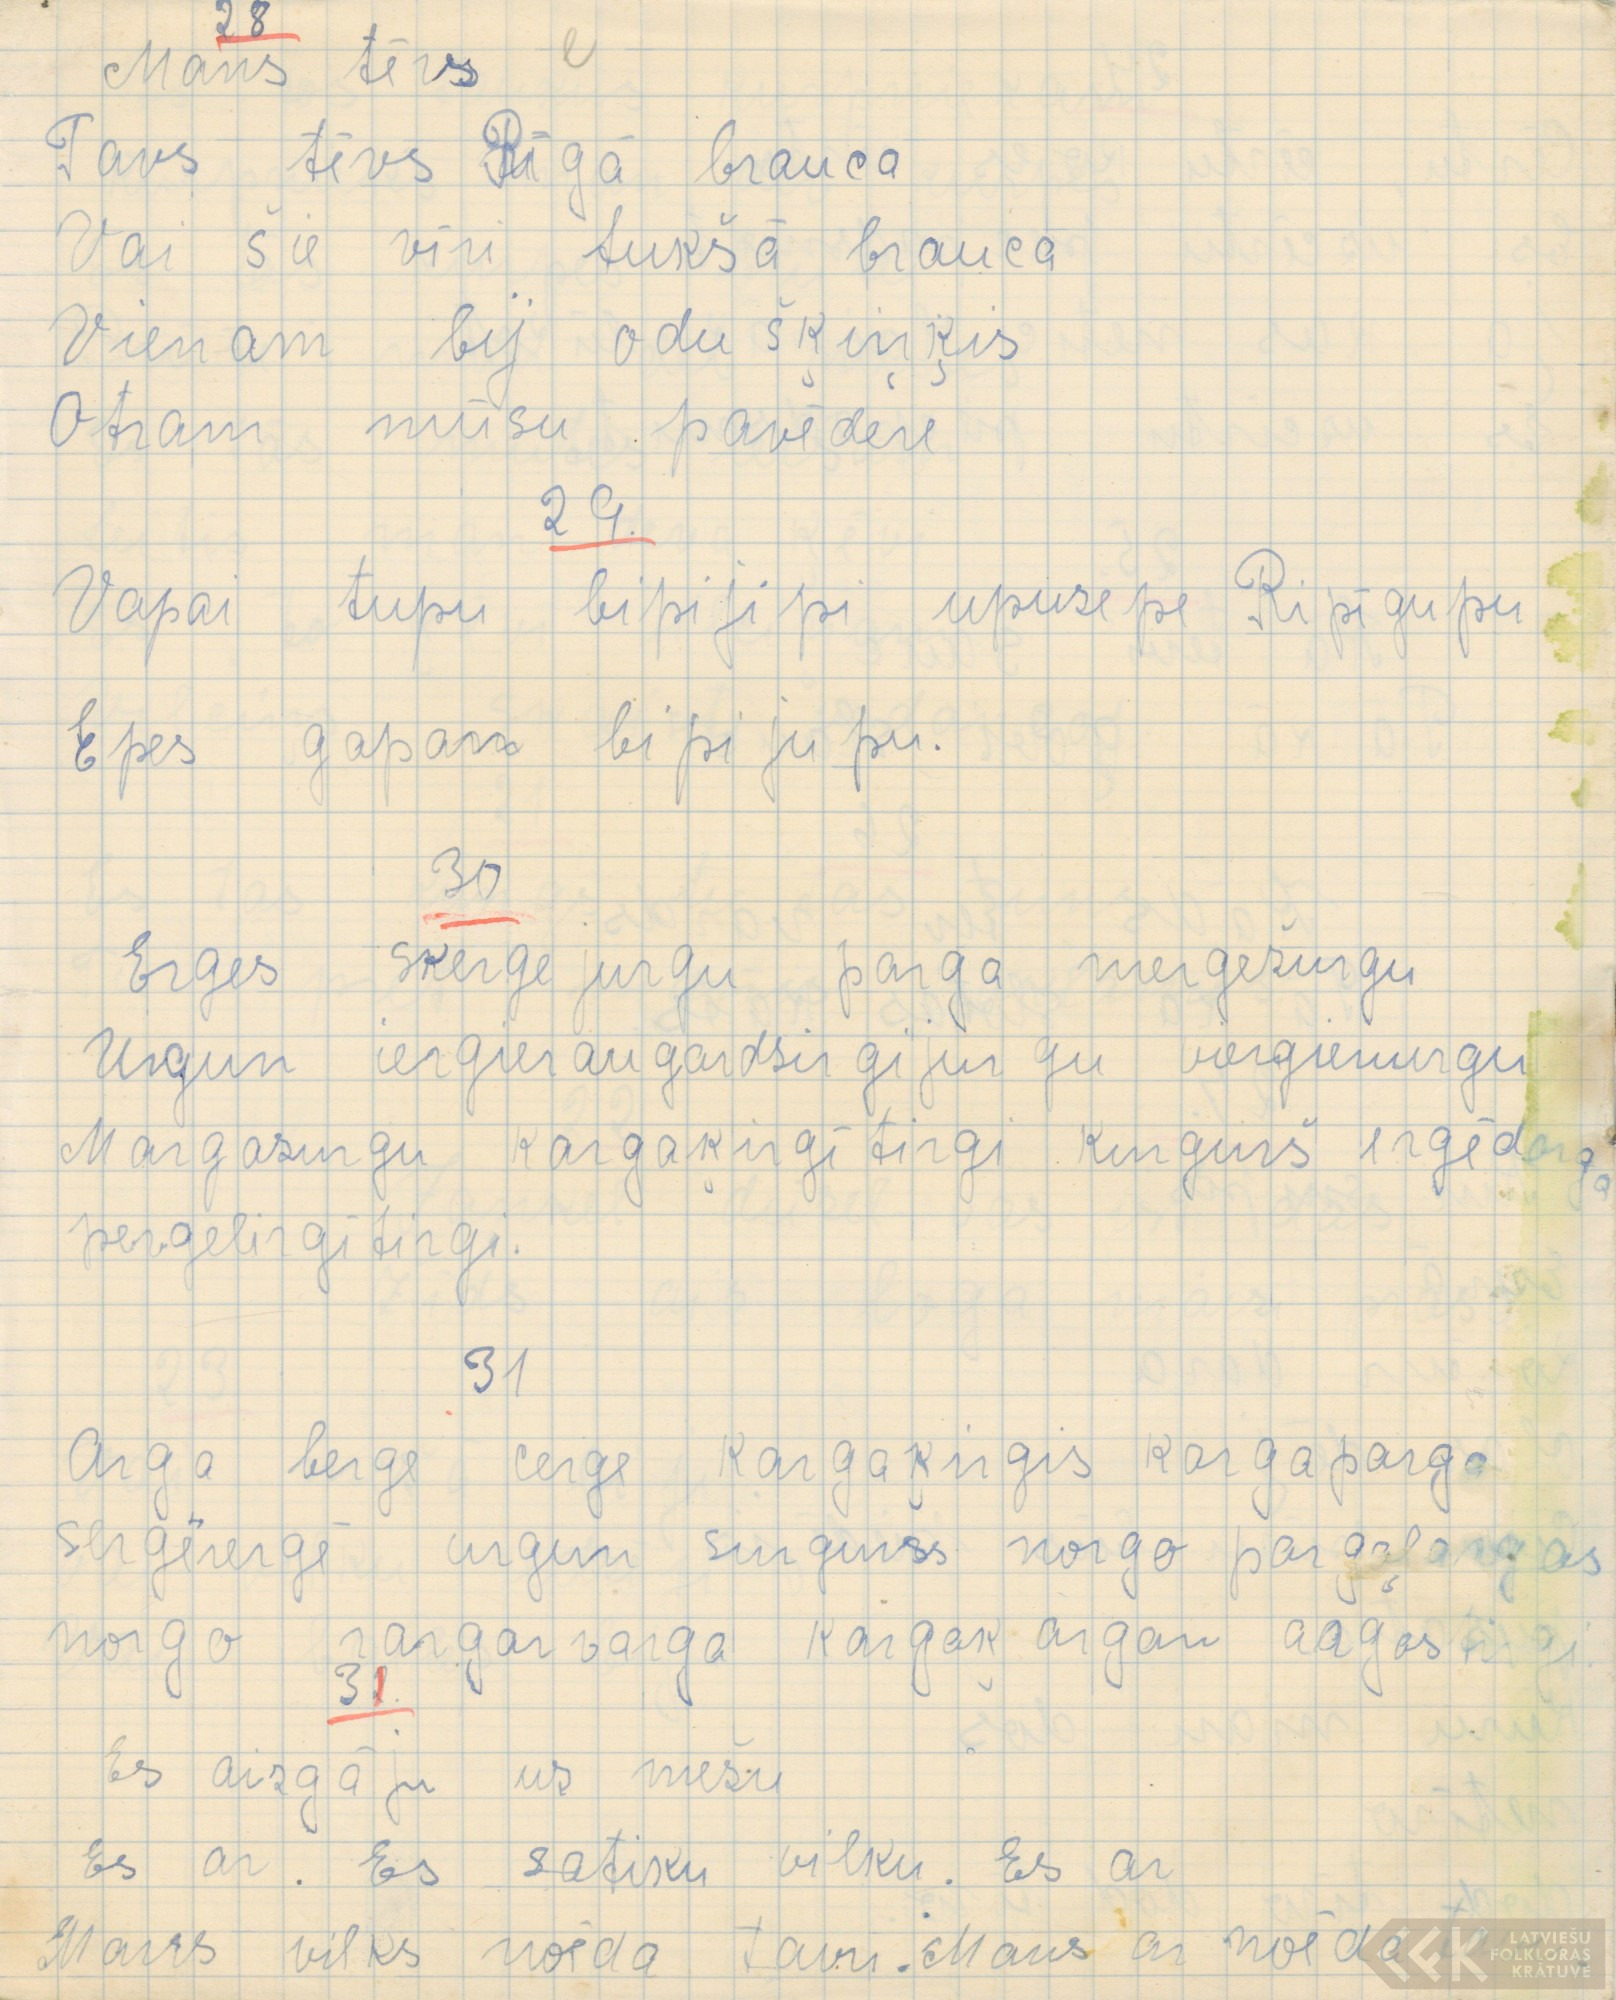 28
Mans tēvs
Tavs tēvs Rīgā brauca
Vai šie vīri tukšā brauca
Vienam bij odu šķiņķis
Otram mūsu pavēdere
29.
Vapai tupu bipijipi upuzepe Ripīgupu
Epes gapan bipijupu.
30
Erges skergejurgu parga mergežurgu
Urgun iergieraugardsirgijurgu viergienurgu
Margazurgu kargaķirgītirgi kurgurš ergēdarga
pergelirgītirgi.
31
Arga berge cerge kargaķirgis kargāparga
sergērergē urgun surguršs norgo pargaļargas
norgo rargarvarga kargakargan aagastirgi.
31.
Es aizgāju uz mežu
Es ar. Es satiku vilku. Es ar
Mans vilks noēda tavu. Mans ar noēda
LATVIEŠU
FOLKLORAS
KRĀTUVE